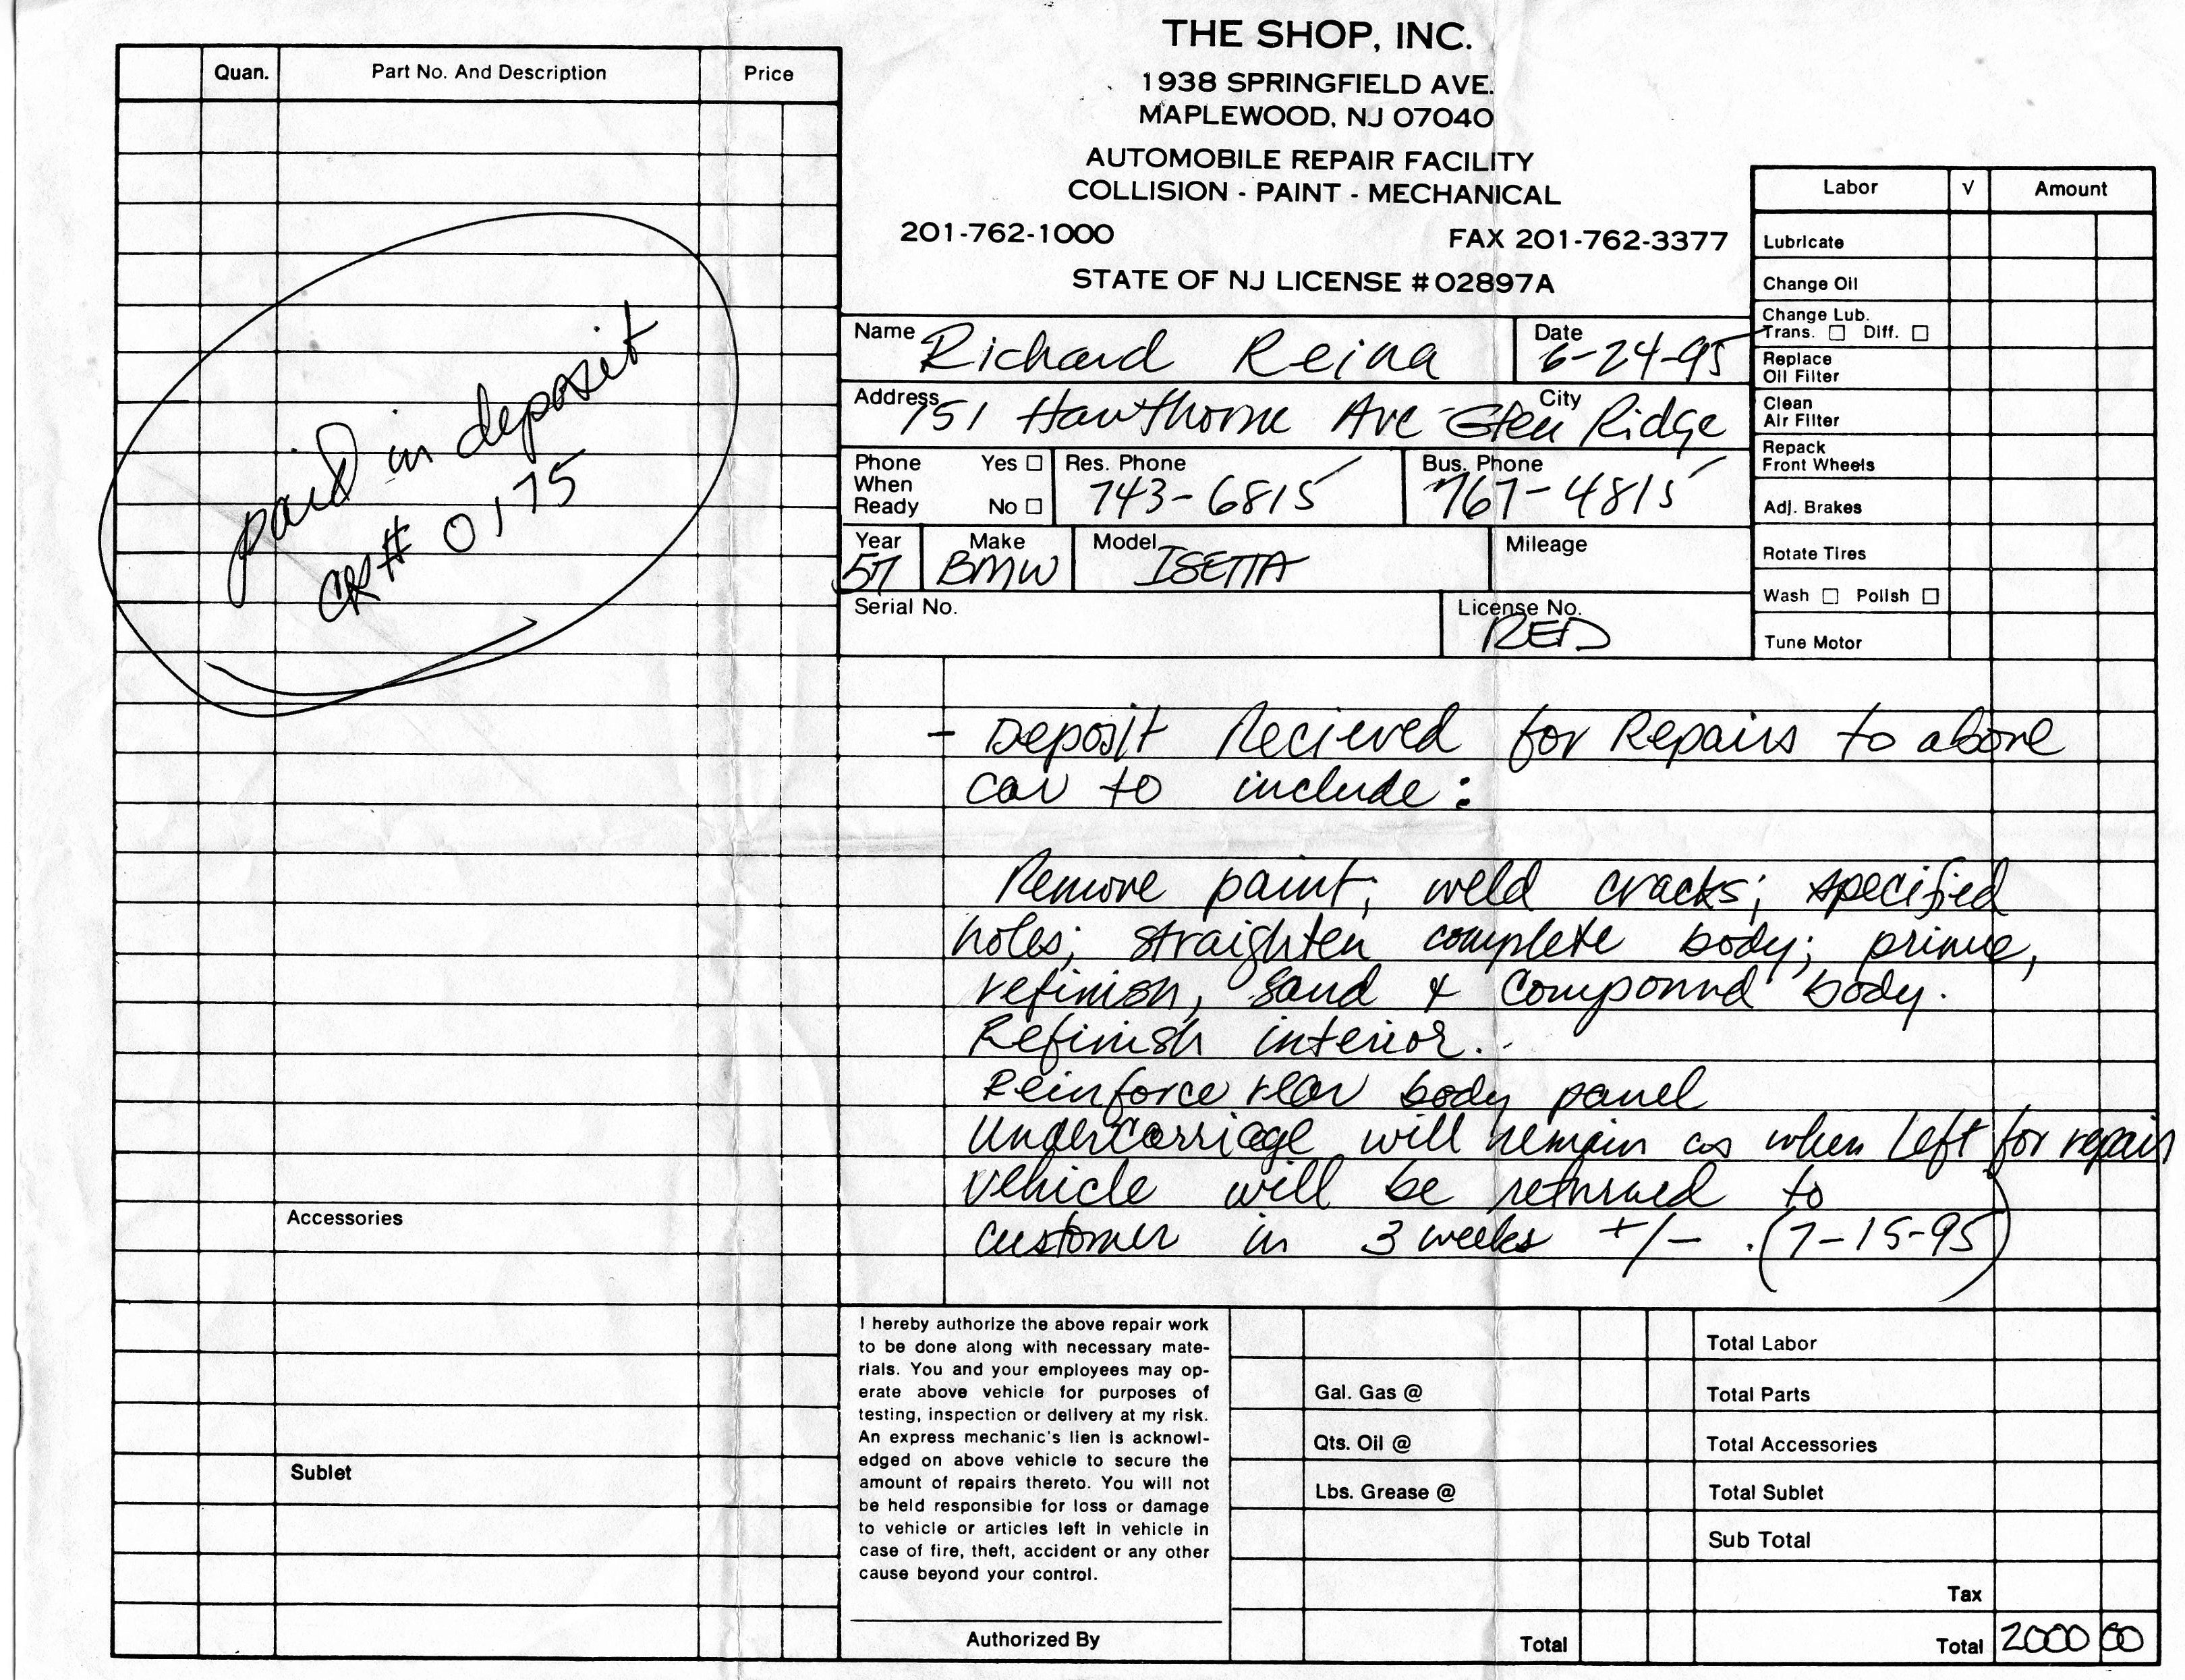 THE SHOP, INC.
1938 SPRINGFIELD AVE.
MAPLEWOOD, NJ 07040
AUTOMOBILE REPAIR FACILITY
COLLISION - PAINT - MECHANICAL
201-762-1000 FAX 201-762-3377
STATE OF NJ LICENSE #02897A
Quan. Part No. And Description Price
paid in deposit
ck# 0175
Accessories
Sublet
Name Richard Reina Date 6-24-95
Address 151 Hawthorne Ave City Glen Ridge
Phone When Ready Yes ☐ No ☐ Res. Phone 743-6815 Bus. Phone 767-4815
Year 57 Make BMW Model ISETTA Mileage
Serial No. License No. RED
Labor √ Amount
Lubricate
Change Oil
Change Lub.
Trans. ☐ Diff. ☐
Replace
Oil Filter
Clean
Air Filter
Repack
Front Wheels
Adj. Brakes
Rotate Tires
Wash ☐ Polish ☐
Tune Motor
- Deposit Recieved for Repairs to above
car to include:
Remove paint; weld cracks; specified
holes; straighten complete body; prime,
refinish, sand & compound body.
Refinish interior.
Reinforce rear body panel
Undercarriage will remain as when left for repair
vehicle will be returned to
customer in 3 weeks +/- (7-15-95)
I hereby authorize the above repair work
to be done along with necessary mate-
rials. You and your employees may op-
erate above vehicle for purposes of
testing, inspection or delivery at my risk.
An express mechanic's lien is acknowl-
edged on above vehicle to secure the
amount of repairs thereto. You will not
be held responsible for loss or damage
to vehicle or articles left in vehicle in
case of fire, theft, accident or any other
cause beyond your control.
Authorized By
Gal. Gas @
Qts. Oil @
Lbs. Grease @
Total
Total Labor
Total Parts
Total Accessories
Total Sublet
Sub Total
Tax
Total 2000 00